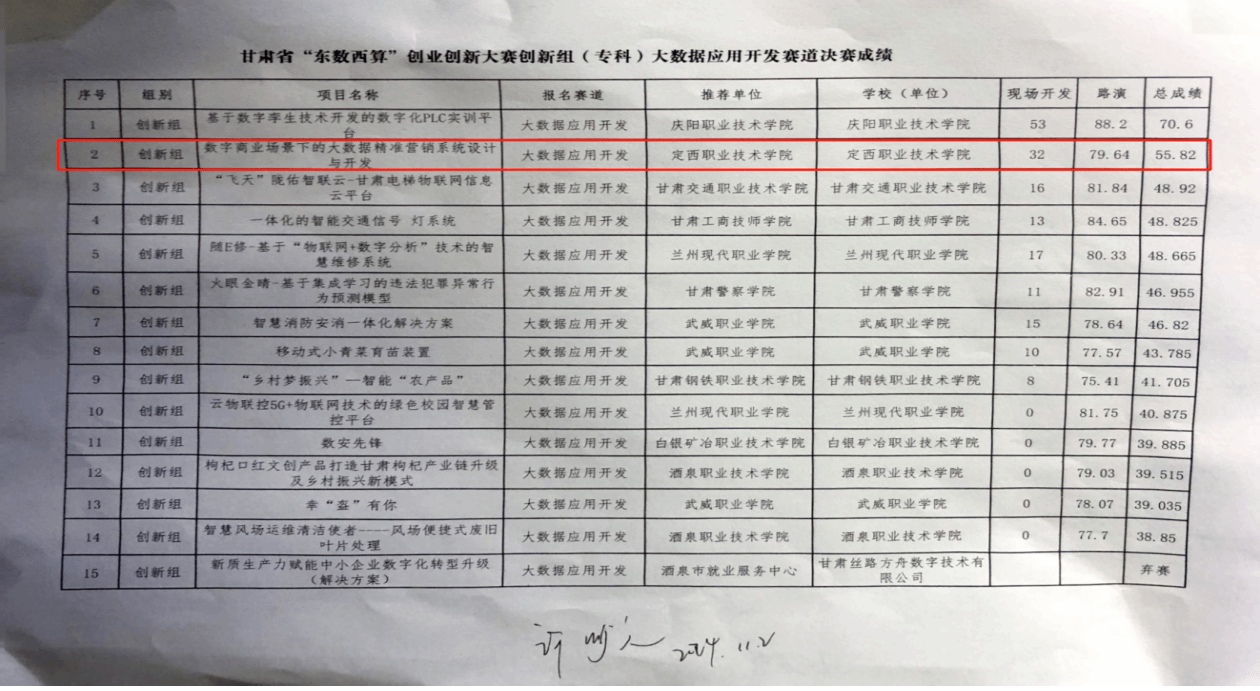 甘肃省“东数西算”创业创新大赛创新组(专科)大数据应用开发赛道决赛成绩
序号 组别 项目名称 报名赛道 推荐单位 学校(单位) 现场开发 路演 总成绩
1 创新组 基于数字孪生技术开发的数字化PLC实训平台 大数据应用开发 庆阳职业技术学院 庆阳职业技术学院 53 88.2 70.6
2 创新组 数字商业场景下的大数据精准营销系统设计与开发 大数据应用开发 定西职业技术学院 定西职业技术学院 32 79.64 55.82
3 创新组 “飞天”陇佑智联云-甘肃电梯物联网信息云平台 大数据应用开发 甘肃交通职业技术学院 甘肃交通职业技术学院 16 81.84 48.92
4 创新组 一体化的智能交通信号 灯系统 大数据应用开发 甘肃工商技师学院 甘肃工商技师学院 13 84.65 48.825
5 创新组 随E修-基于“物联网+数字分析”技术的智慧维修系统 大数据应用开发 兰州现代职业学院 兰州现代职业学院 17 80.33 48.665
6 创新组 大眼金晴-基于集成学习的违法犯罪异常行为预测模型 大数据应用开发 甘肃警察学院 甘肃警察学院 11 82.91 46.955
7 创新组 智慧消防安消一体化解决方案 大数据应用开发 武威职业学院 武威职业学院 15 78.64 46.82
8 创新组 移动式小青菜育苗装置 大数据应用开发 武威职业学院 武威职业学院 10 77.57 43.785
9 创新组 “乡村梦振兴”—智能“农产品” 大数据应用开发 甘肃钢铁职业技术学院 甘肃钢铁职业技术学院 8 75.41 41.705
10 创新组 云物联控5G+物联网技术的绿色校园智慧管控平台 大数据应用开发 兰州现代职业学院 兰州现代职业学院 0 81.75 40.875
11 创新组 数安先锋 大数据应用开发 白银矿冶职业技术学院 白银矿冶职业技术学院 0 79.77 39.885
12 创新组 枸杞口红文创产品打造甘肃枸杞产业链升级及乡村振兴新模式 大数据应用开发 酒泉职业技术学院 酒泉职业技术学院 0 79.03 39.515
13 创新组 幸“盔”有你 大数据应用开发 武威职业学院 武威职业学院 0 78.07 39.035
14 创新组 智慧风场运维清洁使者----风场便捷式废旧叶片处理 大数据应用开发 酒泉职业技术学院 酒泉职业技术学院 0 77.7 38.85
15 创新组 新质生产力赋能中小企业数字化转型升级(解决方案) 大数据应用开发 酒泉市就业服务中心 甘肃丝路方舟数字技术有限公司 弃赛
2024.11.2